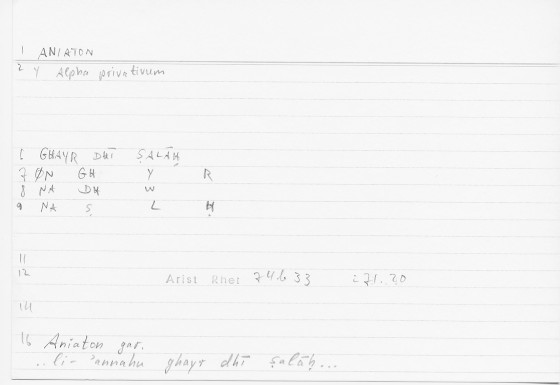 1 ANIATON
2 Y Alpha privativum
6 GHAYR DHĪ ṢALĀḤ
7 ØN GH Y R
8 NA DH W
9 NA Ṣ L Ḥ
11
12 Arist Rhet 74b33 :71.20
14
16 Aniaton gar.
..li-'annahu ghayr dhī ṣalāḥ...